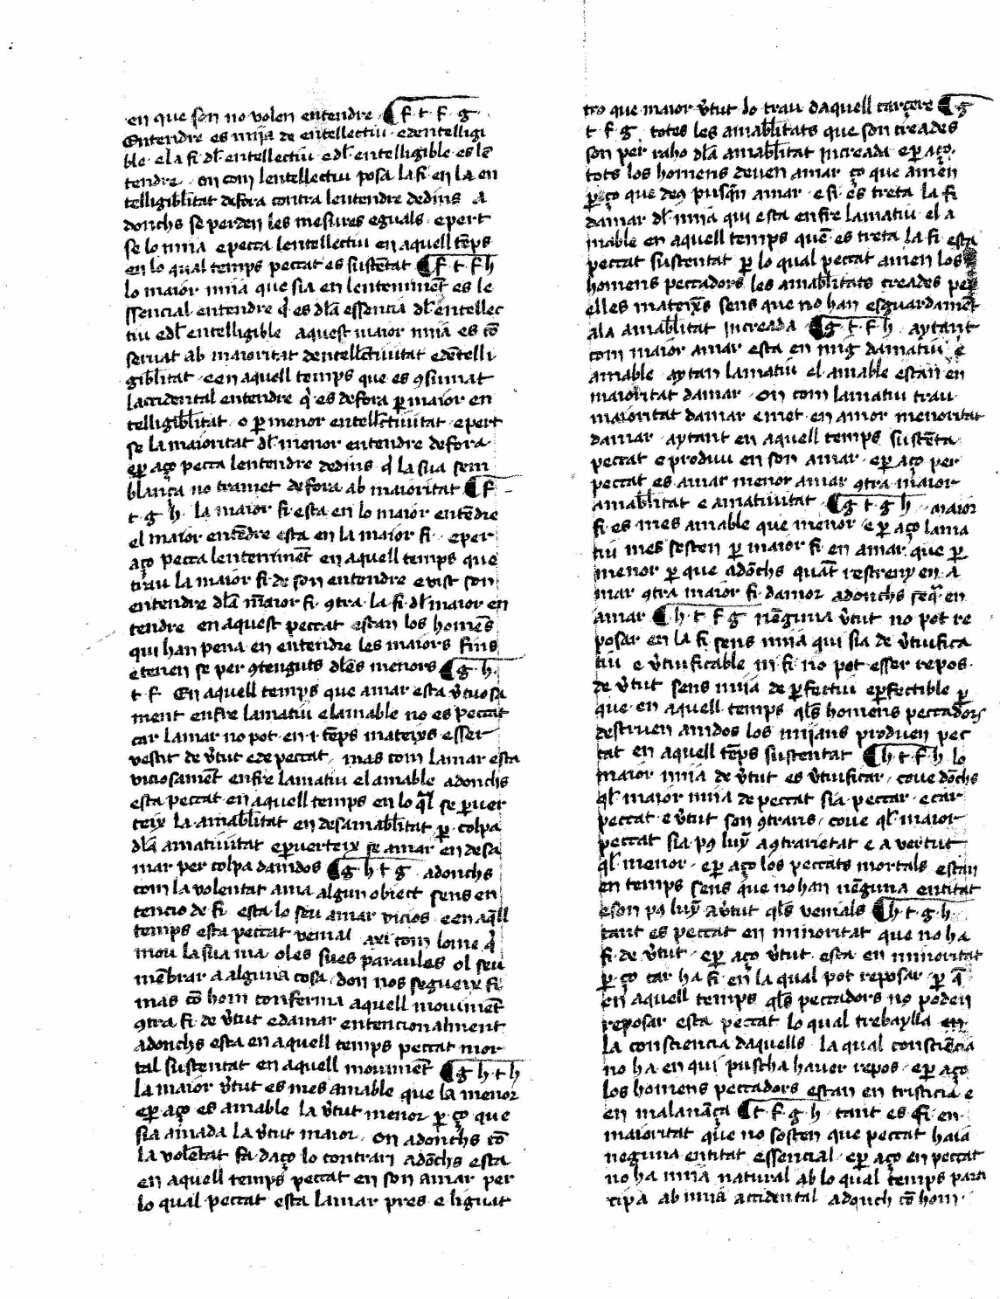 en que son no volen entendre ¶ f · t · f · g ·
Entendre es mija de entellectiu · e dentelligi
ble · e la fi dl̄ entellectiu e dl̄ entelligible · es lē
tendre · on com lentellectiu posa la fi en la en
telligibl̄itat defora contra lentendre dedins · A
donchs se perden les mesures eguals · e pert
se lo mijā e pecca lentellectiu en aquell tēps
en lo qual temps peccat es sustētat ¶ f · t · f h
lo maior mijā que sia en lenteniment̄ es le
ssencial entendre q̄ es dl̄a essencia dl̄ entellec
tiu e dl̄ entelligible aquest maior mijā es cō
servat ab maioritat dentell̄ctiuitat e dētelli
gibl̄itat · e en aquell temps que es ꝯsumat
laccidental entendre q̄ es defora ꝑ maior en
telligibl̄itat · o ꝑ menor entell̄ctiuitat · e pert
se la maioritat dl̄ menor entendre defora ·
eꝑ aço pecca lentendre dedins q̄ la sua sem
blança no tramet defora ab maioritat ¶ f ·
t · g · h · la maior fi esta en lo maior entēdre
el maior entēdre esta en la maior fi · e per
aço pecca lentenimēt en aquell temps que
trau la maior fi de son entendre e vist son
entendre dl̄a m̄aior fi ꝯtra la fi dl̄ maior en
tendre en aquest peccat estan los homēs
qui han pena en entendre les maiors fins
e tenen se per ꝯtenguts dl̄es menors ¶ g · h ·
t · f · En aquell temps que amar esta v̄tuosa
ment enfre lamatiu e lamable no es peccat
car lamar no pot en · i · tēps mateyꝫ esser
vestit de v̄tut e de peccat · mas com lamar esta
viciosamēt enfre lamatiu el amable adonchs
esta peccat en aquell temps en lo q̄l se ꝑuer
teix la amabl̄itat en desamabl̄itat ꝑ colpa
dl̄a amatiuitat e ꝑuerteix se amar en desa
mar per colpa damdos ¶ g · h · t · g · adonchs
com la volentat ama algun obiect sens en
tencio de fi esta lo seu amar vicios · e en aq̄ll
temps esta peccat venial axi com lome q̄
mou la sua ma oles sues paraules ol seu
mēbrar a alguna cosa · don nos segueix fi
mas cō hom conferma aquell mouimēt
ꝯtra fi de v̄tut e damar entencionalment
adonchs esta en aquell temps peccat mor
tal sustentat en aquell mouimēt ¶ g · h · t · h
la maior v̄tut es mes amable que la menor
eꝑ aço es amable la v̄tut menor ꝑ ço que
sia amada la v̄tut maior · on adonchs cō
la volētat fa daço lo contrari adōchs esta
en aquell temps peccat en son amar per
lo qual peccat esta lamar pres e liguat
tro que maior v̄tut lo trau daquell carçere ¶ g
t · f · g · totes les amabl̄itats que son creades
son per raho dl̄a amabl̄itat increada eꝑ aço ·
tots los homens deuen amar ço que amen
ꝑ ço que deꝰ pusq̄n amar · e si es treta la fi
damar dl̄ mijā qui esta enfre lamatiu el a
mable en aquell temps quē es treta la fi esta
peccat sustentat ꝑ lo qual peccat amen los
homens peccadors les amabl̄itats creades per
elles mateyꝫs sens que no han esguardamēt
a la amabl̄itat increada ¶ g · t · f · h · aytant
com maior amar esta en mig damatiu e
amable · aytan lamatiu el amable estan en
maioritat damar · on com lamatiu trau
maioritat damar e met en amor menoritat
damar · aytant en aquell temps sustēta
peccat e produu en son amar · eꝑ aço per
peccat es amar menor amar ꝯtra maior
amabl̄itat e amatiuitat ¶ g · t · g · h · maior
fi es mes amable que menor · e ꝑ aço lama
tiu mes sosten ꝑ maior fi en amar que ꝑ
menor ꝑ que adōchs quāt restreny en a
mar ꝯtra maior fi damor adonchs seq̄ en
amar ¶ h · t · f · g · nēguna v̄tut no pot re
posar en la fi sens mijā qui sia de v̄tuifica
tiu e v̄tuificable ni fi no pot esser repos ·
de v̄tut sens mijā de ꝑfectiu eꝑfectible ꝑ
que en aquell temps qls̄ homens peccadors
destruen amdos los mijans produen pec
cat en aquell tēps sustentat ¶ h · t · f · h · lo
maior mijā de v̄tut es v̄tuificar · coue dōchs
ql̄ maior mijā de peccat sia peccar · e car
peccat e v̄tut son ꝯtraris · coue ql̄ maior
peccat sia pꝰ luny a ꝯtrarietat e a vertut
ql̄ menor · eꝑ aço los peccats mortals estan
en temps sens que no han nēguna entitat
e son pꝰ luny a v̄tut qls̄ venials ¶ h · t · g · h ·
tant es peccat en minoritat que no ha
fi de v̄tut · eꝑ aço v̄tut esta en minoritat
ꝑ ço car ha fi en la qual pot reposar · ꝑ q̄
en aquell temps qls̄ peccadors no poden
reposar esta peccat lo qual trebaylla en
la consciencia daquells · la qual consciēcia
no ha en qui puscha hauer repos · eꝑ aço
los homens peccadors estan en tristicia e
en malanāça ¶ t · f · g · h · tant es fi en
maioritat que no sosten que peccat haia
neguna entitat essencial · eꝑ aço en peccat
no ha mijā natural ab lo qual temps parti
cipa ab mijā accidental adonch cō hom ·